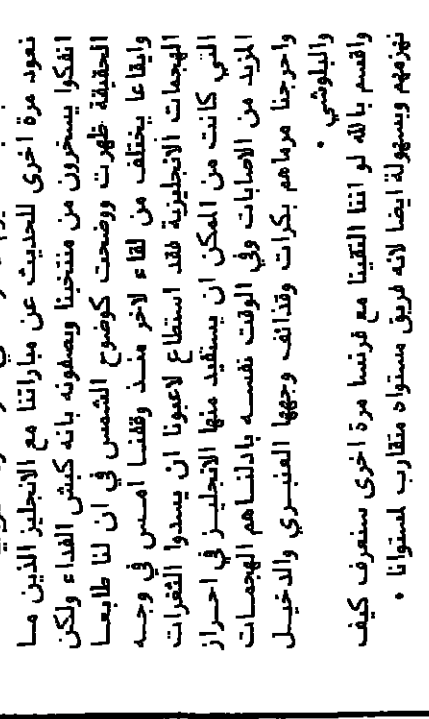 نعود مرة اخرى للحديث عن مباراتنا مع الانجليز الذين مــا
انفكوا يسخرون من منتخبنا ويصفونه بانه كبش الفداء ولكن
الحقيقة ظهرت ووضحت كوضوح الشمس في ان لنا طابعــا
وايقاعا يختلف من لقاء لاخر منــذ وقفنــا امــس في وجــه
الهجمات الانجليزية فقد استطاع لاعبونا ان يسدوا الثغرات
التي كانت من الممكن ان يستفيد منها الانجليــز في احــراز
المزيد من الاصابات وفي الوقت نفســه بادلنــاهم الهجمــات
واحرجنا مرماهم بكرات وقذائف وجهها العنبــري والدخيــل
والبلوشي •
واقسم بالله لو اننا التقينا مع فرنسا مرة اخرى سنعرف كيف
نهزمهم وبسهولة ايضا لانه فريق مستواه متقارب لمستوانا •